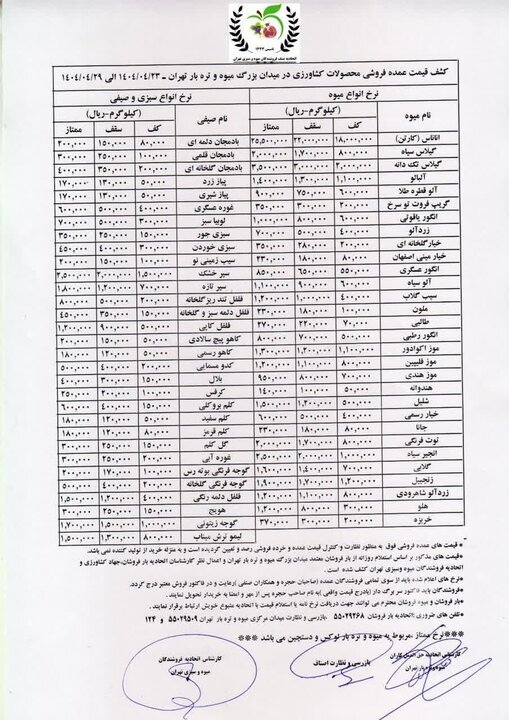 تاسیس ۱۳۴۴
اتحادیه صنف فروشندگان میوه و سبزی تهران
کشف قیمت عمده فروشی محصولات کشاورزی در میدان بزرگ میوه و تره بار تهران ـ ۱۴۰۴/۰۴/۲۳ الی ۱۴۰۴/۰۴/۲۹
نرخ انواع میوه
(کیلوگرم-ریال)
نام میوه کف سقف ممتاز
آناناس (کارتن) ۱۸,۰۰۰,۰۰۰ ۲۲,۰۰۰,۰۰۰ ۲۵,۵۰۰,۰۰۰
گیلاس سیاه ۸۰۰,۰۰۰ ۱,۷۰۰,۰۰۰ ۲,۰۰۰,۰۰۰
گیلاس تک دانه ۲,۰۰۰,۰۰۰ ۳,۰۰۰,۰۰۰ ۳,۵۰۰,۰۰۰
آلبالو ۱,۱۰۰,۰۰۰ ۱,۳۰۰,۰۰۰ ۱,۴۰۰,۰۰۰
آلو قطره طلا ۶۰۰,۰۰۰ ۷۵۰,۰۰۰ ۹۰۰,۰۰۰
گریپ فروت تو سرخ ۲۰۰,۰۰۰ ۳۰۰,۰۰۰ ۳۵۰,۰۰۰
انگور یاقوتی ۶۰۰,۰۰۰ ۸۰۰,۰۰۰ ۱,۰۰۰,۰۰۰
زردآلو ۴۰۰,۰۰۰ ۵۰۰,۰۰۰ ۷۰۰,۰۰۰
خیار گلخانه ای ۲۰۰,۰۰۰ ۲۸۰,۰۰۰ ۳۵۰,۰۰۰
خیار مینی اصفهان ۸۰,۰۰۰ ۱۸۰,۰۰۰ ۲۳۰,۰۰۰
انگور عسگری ۵۵۰,۰۰۰ ۶۵۰,۰۰۰ ۸۵۰,۰۰۰
آلو سیاه ۶۰۰,۰۰۰ ۹۰۰,۰۰۰ ۱,۱۰۰,۰۰۰
سیب گلاب ۴۰۰,۰۰۰ ۱,۰۰۰,۰۰۰ ۱,۲۰۰,۰۰۰
ملون ۱۰۰,۰۰۰ ۱۸۰,۰۰۰ ۲۳۰,۰۰۰
طالبی ۷۰,۰۰۰ ۲۲۰,۰۰۰ ۲۷۰,۰۰۰
انگور رطبی ۵۰۰,۰۰۰ ۷۰۰,۰۰۰ ۸۰۰,۰۰۰
موز اکوادور ۱,۱۰۰,۰۰۰ ۱,۲۰۰,۰۰۰ ۱,۳۰۰,۰۰۰
موز فلیپین ۸۰۰,۰۰۰ ۱,۱۰۰,۰۰۰ ۱,۲۰۰,۰۰۰
موز هندی ۷۰۰,۰۰۰ ۸۰۰,۰۰۰ ۹۵۰,۰۰۰
هندوانه ۵۰,۰۰۰ ۱۰۰,۰۰۰ ۱۴۰,۰۰۰
شلیل ۵۰۰,۰۰۰ ۱,۲۰۰,۰۰۰ ۱,۵۰۰,۰۰۰
خیار رسمی ۴۰۰,۰۰۰ ۵۰۰,۰۰۰ ۶۰۰,۰۰۰
جانا ۸۰,۰۰۰ ۱۸۰,۰۰۰ ۲۳۰,۰۰۰
توت فرنگی ۸۰۰,۰۰۰ ۱,۷۰۰,۰۰۰ ۲,۰۰۰,۰۰۰
انجیر سیاه ۱,۰۰۰,۰۰۰ ۲,۰۰۰,۰۰۰ ۲,۵۰۰,۰۰۰
گلابی ۷۰۰,۰۰۰ ۱,۴۰۰,۰۰۰ ۱,۶۰۰,۰۰۰
زنجبیل ۱,۲۰۰,۰۰۰ ۱,۷۰۰,۰۰۰ ۱,۹۰۰,۰۰۰
زردآلو شاهرودی ۸۰۰,۰۰۰ ۱,۰۰۰,۰۰۰ ۱,۲۰۰,۰۰۰
هلو ۳۰۰,۰۰۰ ۸۰۰,۰۰۰ ۱,۱۰۰,۰۰۰
خربزه ۲۰۰,۰۰۰ ۳۰۰,۰۰۰ ۳۷۰,۰۰۰
نرخ انواع سبزی و صیفی
(کیلوگرم-ریال)
نام صیفی کف سقف ممتاز
بادمجان دلمه ای ۸۰,۰۰۰ ۱۵۰,۰۰۰ ۲۰۰,۰۰۰
بادمجان قلمی ۱۰۰,۰۰۰ ۲۵۰,۰۰۰ ۳۰۰,۰۰۰
بادمجان گلخانه ای ۲۰۰,۰۰۰ ۳۵۰,۰۰۰ ۴۰۰,۰۰۰
پیاز زرد ۵۰,۰۰۰ ۱۳۰,۰۰۰ ۱۷۰,۰۰۰
پیاز شیری ۵۰,۰۰۰ ۱۳۰,۰۰۰ ۱۷۰,۰۰۰
غوره عسگری ۴۰۰,۰۰۰ ۵۰۰,۰۰۰ ۶۰۰,۰۰۰
لوبیا سبز ۳۰۰,۰۰۰ ۵۰۰,۰۰۰ ۷۰۰,۰۰۰
سبزی جور ۱۵۰,۰۰۰ ۲۵۰,۰۰۰ ۳۵۰,۰۰۰
سبزی خوردن ۳۰۰,۰۰۰ ۴۰۰,۰۰۰ ۴۵۰,۰۰۰
سیب زمینی نو ۱۰۰,۰۰۰ ۱۵۰,۰۰۰ ۲۰۰,۰۰۰
سیر خشک ۱,۵۰۰,۰۰۰ ۲,۰۰۰,۰۰۰ ۲,۵۰۰,۰۰۰
سیر تازه ۷۰۰,۰۰۰ ۱,۲۰۰,۰۰۰ ۱,۸۰۰,۰۰۰
فلفل تند ریز گلخانه ۲۰۰,۰۰۰ ۵۰۰,۰۰۰ ۸۰۰,۰۰۰
فلفل دلمه سبز و گلخانه ۱۵۰,۰۰۰ ۳۵۰,۰۰۰ ۴۵۰,۰۰۰
فلفل کاپی ۵۰۰,۰۰۰ ۹۰۰,۰۰۰ ۱,۲۰۰,۰۰۰
کاهو پیچ سالادی ۵۰,۰۰۰ ۱۵۰,۰۰۰ ۲۰۰,۰۰۰
کاهو رسمی ۵۰,۰۰۰ ۱۲۰,۰۰۰ ۱۸۰,۰۰۰
کدو مسمایی ۲۰۰,۰۰۰ ۴۰۰,۰۰۰ ۵۰۰,۰۰۰
بلال ۱۵۰,۰۰۰ ۳۰۰,۰۰۰ ۴۰۰,۰۰۰
کرفس ۱۰۰,۰۰۰ ۲۵۰,۰۰۰ ۳۰۰,۰۰۰
کلم بروکلی ۱۵۰,۰۰۰ ۴۰۰,۰۰۰ ۶۰۰,۰۰۰
کلم سفید ۵۰,۰۰۰ ۱۲۰,۰۰۰ ۱۸۰,۰۰۰
کلم قرمز ۸۰,۰۰۰ ۱۲۰,۰۰۰ ۱۸۰,۰۰۰
گل کلم ۱۵۰,۰۰۰ ۲۵۰,۰۰۰ ۳۰۰,۰۰۰
غوره آبی ۲۰۰,۰۰۰ ۲۵۰,۰۰۰ ۳۰۰,۰۰۰
گوجه فرنگی بوته رس ۱۰۰,۰۰۰ ۱۷۰,۰۰۰ ۲۰۰,۰۰۰
گوجه فرنگی گلخانه ۲۰۰,۰۰۰ ۴۰۰,۰۰۰ ۵۰۰,۰۰۰
فلفل دلمه رنگی ۴۰۰,۰۰۰ ۱,۲۰۰,۰۰۰ ۱,۵۰۰,۰۰۰
هویج ۱۵۰,۰۰۰ ۲۵۰,۰۰۰ ۳۰۰,۰۰۰
گوجه زیتونی ۱,۰۰۰,۰۰۰ ۱,۵۰۰,۰۰۰ ۱,۷۰۰,۰۰۰
لیمو ترش میناب ۸۰۰,۰۰۰ ۱,۳۰۰,۰۰۰ ۱,۵۰۰,۰۰۰
* قیمت های عمده فروشی فوق به منظور نظارت و کنترل قیمت عمده و خرده فروشی رصد و تعیین گردیده است و به منزله خرید از تولید کننده نمی باشد.
*قیمت های مذکور بر اساس استعلام روزانه از بارفروشان معتمد میدان بزرگ میوه و تره بار تهران و اعمال نظر کارشناسان بارفروشان،جهاد کشاورزی و
اتحادیه فروشندگان میوه وسبزی تهران کشف شده است.
*نرخ های اعلام شده باید از سوی تمامی فروشندگان عمده (صاحبان حجره و همکاران صنفی )رعایت و در فاکتور فروش معتبر درج گردد.
*فروشندگان باید فاکتور سر برگ دار (بادرج قیمت واقعی )به نام صاحب حجره پس از مهر و امضا به خریدار تحویل نمایند.
*بار فروشان و میوه فروشان محترم می توانند جهت دریافت نرخ نامه یا استعلام قیمت با اتحادیه متبوع خویش ارتباط برقرار نمایند.
*تلفن های ضروری :اتحادیه بار فروشان ۵۵۰۲۹۲۶۸ ،بازرسی و نظارت میدان مرکزی میوه و تره بار تهران ۵۵۰۲۹۵۰۹ و ۱۲۴
***نرخ ممتاز ،مربوط به میوه و تره بار لوکس و دستچین می باشد ***
کارشناس اتحادیه حق العمل کاران
میوه و تره بار تهران
بازرسی و نظارت اصناف
کارشناس اتحادیه فروشندگان
میوه و سبزی تهران